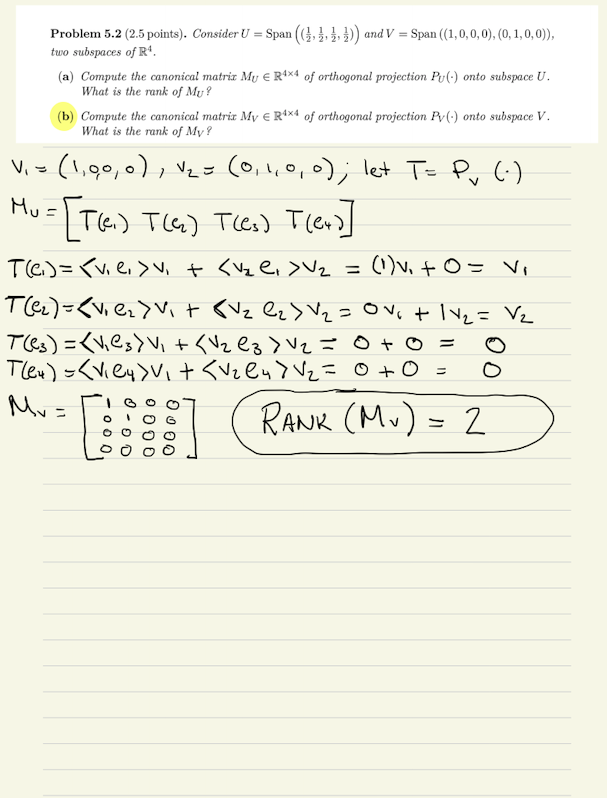 Problem 5.2 (2.5 points). Consider U = Span ((1/2, 1/2, 1/2, 1/2)) and V = Span ((1, 0, 0, 0), (0, 1, 0, 0)),
two subspaces of ℝ⁴.
(a) Compute the canonical matrix M_U ∈ ℝ^{4×4} of orthogonal projection P_U(·) onto subspace U.
What is the rank of M_U?
(b) Compute the canonical matrix M_V ∈ ℝ^{4×4} of orthogonal projection P_V(·) onto subspace V.
What is the rank of M_V?
V₁ = (1,0,0,0), V₂ = (0,1,0,0); let T = P_V (·)
M_U = [T(e₁) T(e₂) T(e₃) T(e₄)]
T(e₁) = <V₁ e₁>V₁ + <V₂ e₁>V₂ = (1)V₁ + 0 = V₁
T(e₂) = <V₁ e₂>V₁ + <V₂ e₂>V₂ = 0V₁ + 1V₂ = V₂
T(e₃) = <V₁e₃>V₁ + <V₂ e₃>V₂ = 0 + 0 = 0
T(e₄) = <V₁e₄>V₁ + <V₂e₄>V₂ = 0 + 0 = 0
M_V = [1 0 0 0
0 1 0 0
0 0 0 0
0 0 0 0]
RANK (M_V) = 2